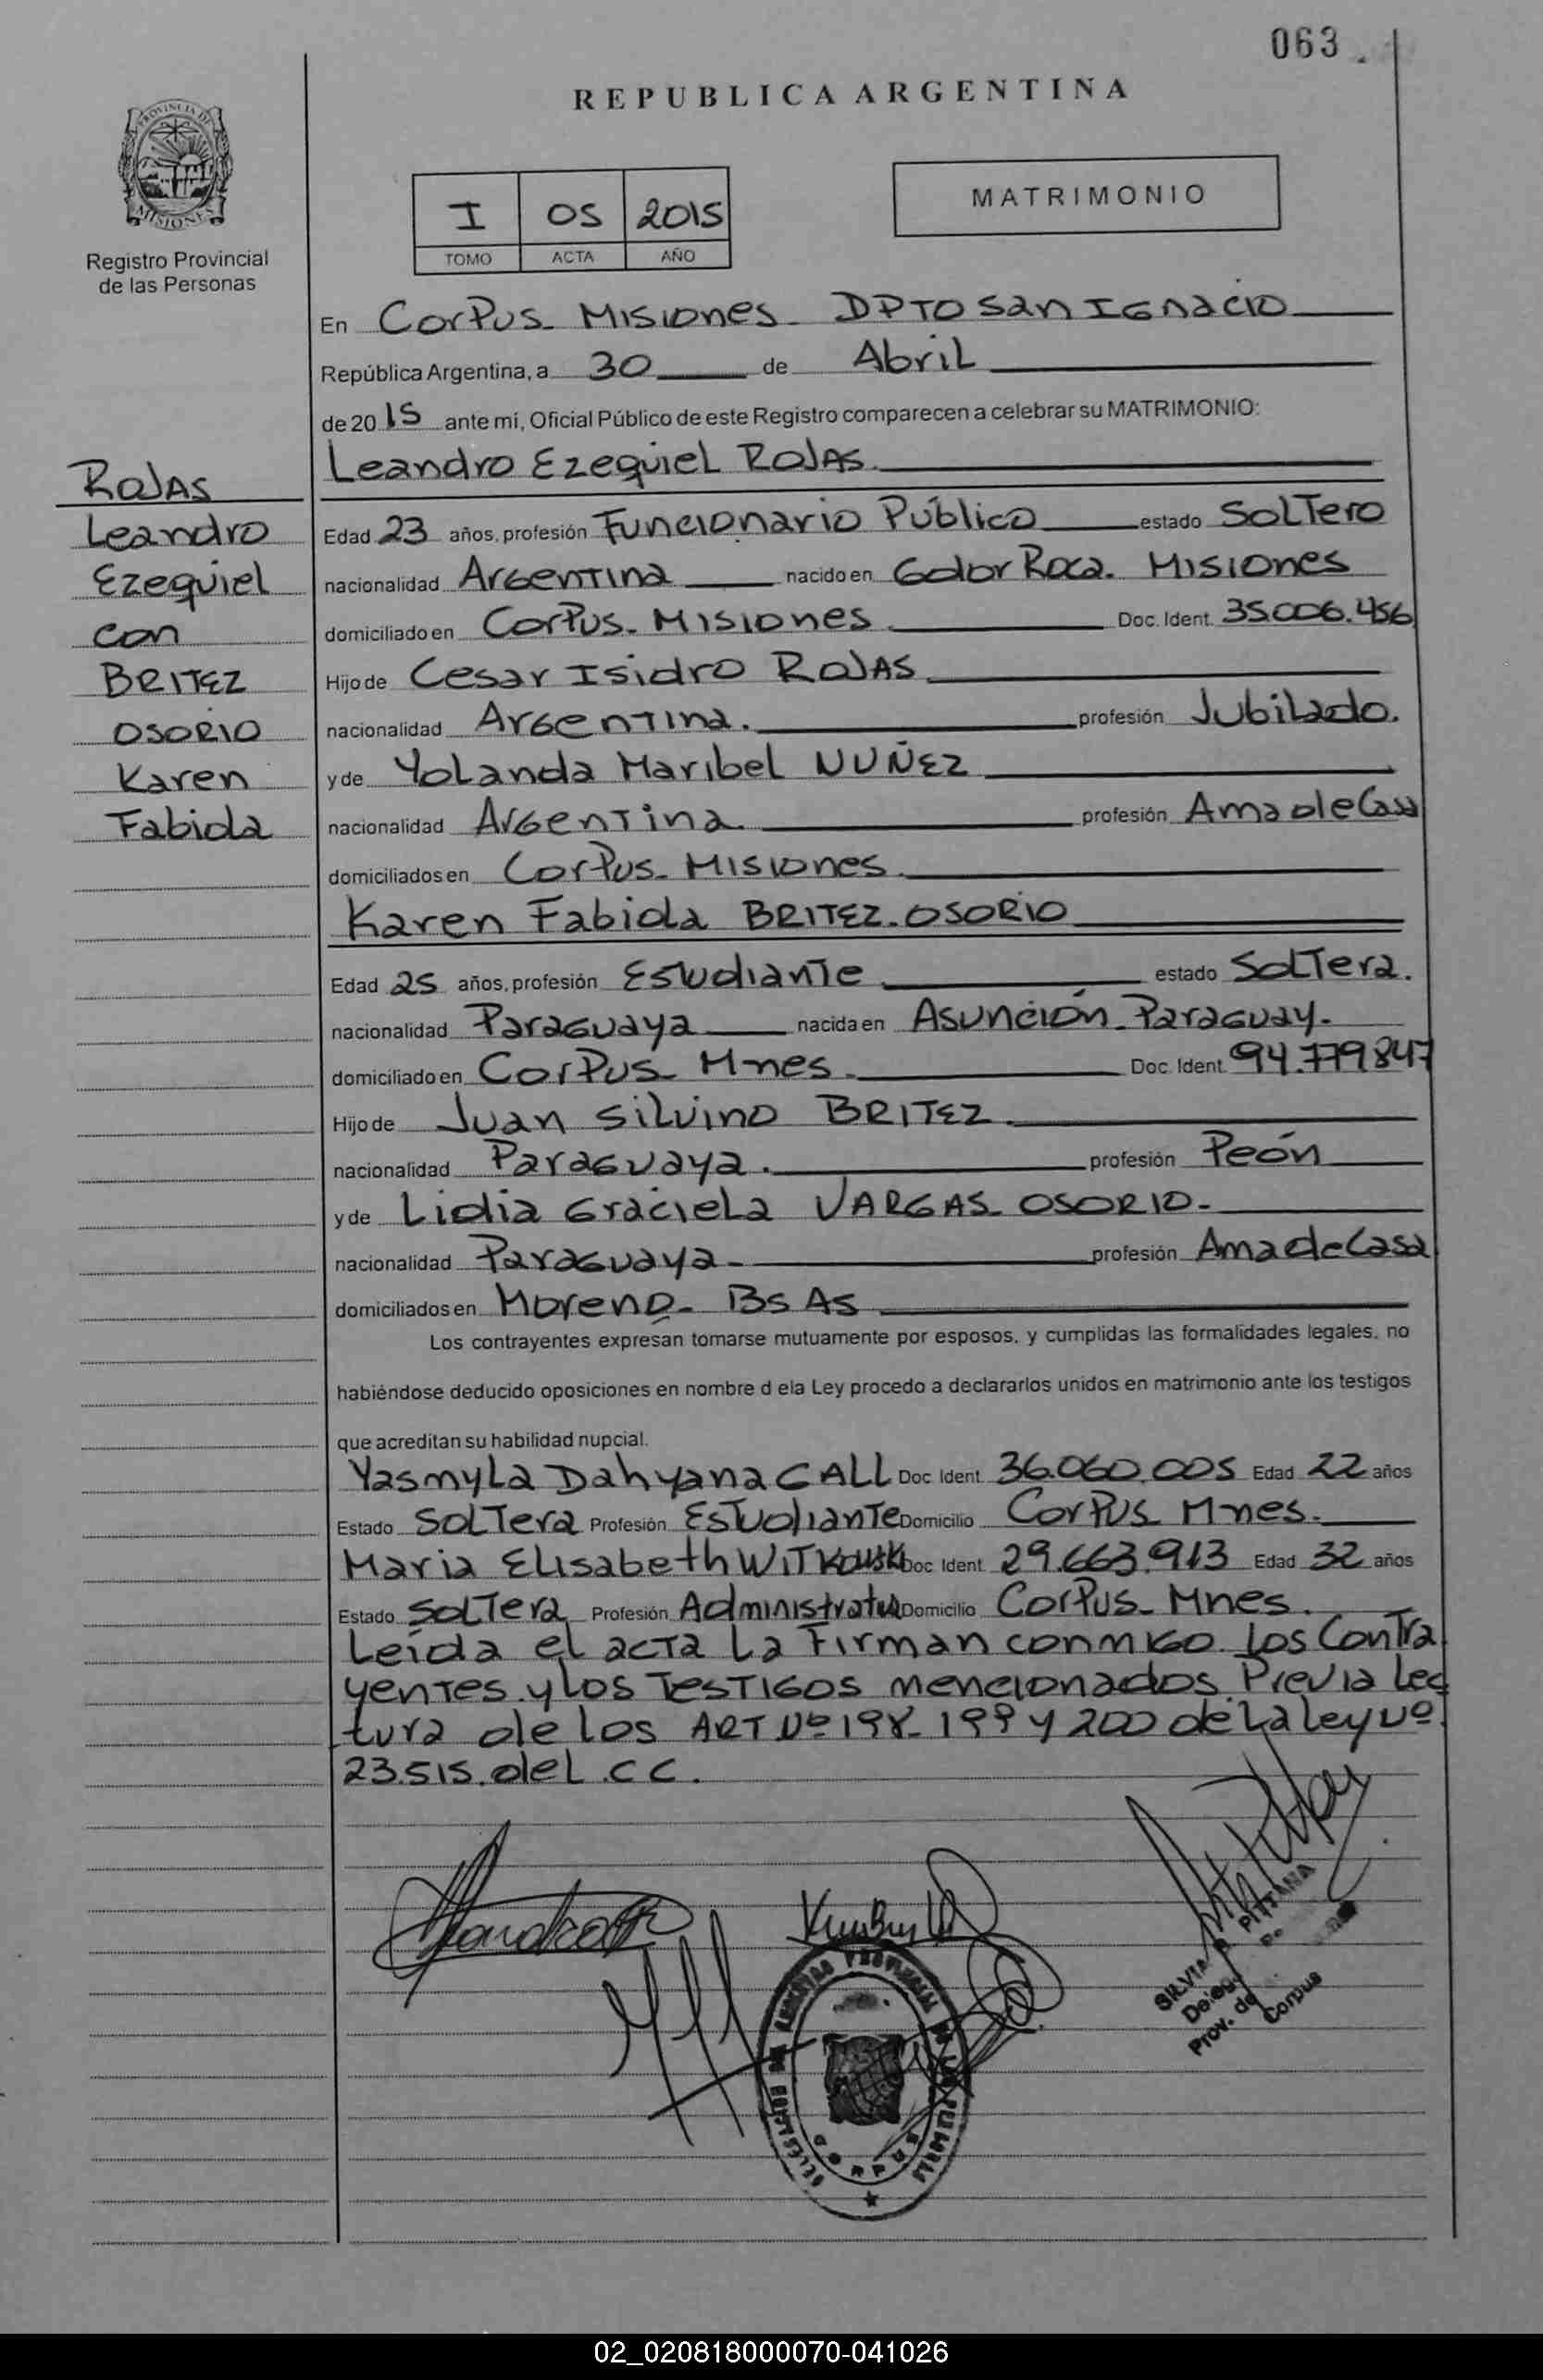 063.
REPUBLICA ARGENTINA
PROVINCIA DE
MISIONES
Registro Provincial
de las Personas
I 05 2015
TOMO ACTA AÑO
MATRIMONIO
En Corpus Misiones DPTO San Ignacio
República Argentina, a 30 de Abril
de 2015 ante mí, Oficial Público de este Registro comparecen a celebrar su MATRIMONIO:
Leandro Ezequiel ROJAS
ROJAS
Leandro
Ezequiel
con
BRITEZ
OSORIO
Karen
Fabiola
Edad 23 años, profesión Funcionario Público estado Soltero
nacionalidad Argentina nacido en Gdor Roca. Misiones
domiciliado en Corpus. Misiones Doc. Ident. 35.006.456
Hijo de Cesar Isidro ROJAS
nacionalidad Argentina. profesión Jubilado.
y de Yolanda Maribel NUÑEZ
nacionalidad Argentina profesión Ama de Casa
domiciliados en Corpus. Misiones
Karen Fabiola BRITEZ. OSORIO
Edad 25 años, profesión Estudiante estado Soltera.
nacionalidad Paraguaya nacida en Asunción. Paraguay.
domiciliado en Corpus Mnes. Doc. Ident. 94.779847
Hijo de Juan Silvino BRITEZ
nacionalidad Paraguaya. profesión Peón
y de Lidia Graciela VARGAS OSORIO.
nacionalidad Paraguaya profesión Ama de Casa
domiciliados en Moreno. Bs As
Los contrayentes expresan tomarse mutuamente por esposos, y cumplidas las formalidades legales, no
habiéndose deducido oposiciones en nombre d ela Ley procedo a declararlos unidos en matrimonio ante los testigos
que acreditan su habilidad nupcial.
Yasmyla Dahyana CALL Doc Ident. 36.060.005 Edad 22 años
Estado Soltera Profesión Estudiante Domicilio Corpus Mnes.
Maria Elisabeth WITKOWSKI Doc Ident. 29.663.913 Edad 32 años
Estado Soltera Profesión Administrativa Domicilio Corpus. Mnes.
Leída el acta la firman conmigo los Contra
yentes y los Testigos mencionados. Previa lec
tura de los ART Nº 198- 199 y 200 de la ley Nº
23.515. del C C.
SILVIA PITTANA
Prov. de Corpus
CORPUS
02_020818000070-041026